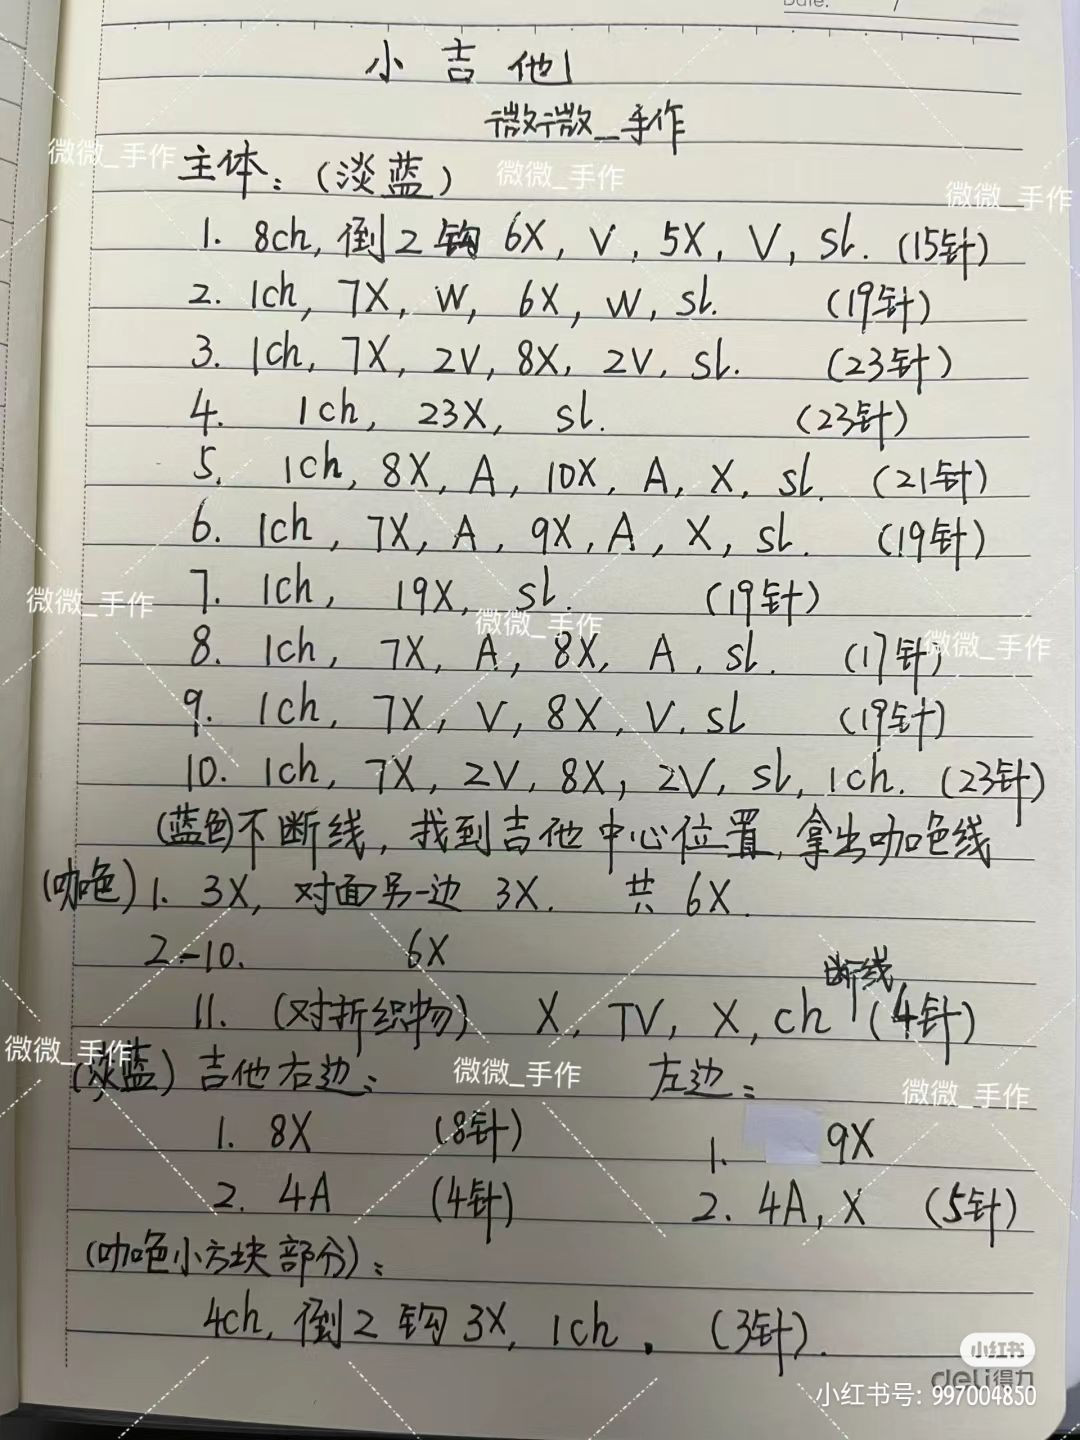 Date:
小吉他
微微_手作
主体：（淡蓝）
1. 8ch, 倒2钩 6X, V, 5X, V, sl. (15针)
2. 1ch, 7X, W, 6X, W, sl. (19针)
3. 1ch, 7X, 2V, 8X, 2V, sl. (23针)
4. 1ch, 23X, sl. (23针)
5. 1ch, 8X, A, 10X, A, X, sl. (21针)
6. 1ch, 7X, A, 9X, A, X, sl. (19针)
7. 1ch, 19X, sl. (19针)
8. 1ch, 7X, A, 8X, A, sl. (17针)
9. 1ch, 7X, V, 8X, V, sl (19针)
10. 1ch, 7X, 2V, 8X, 2V, sl, 1ch. (23针)
(蓝色)不断线，找到吉他中心位置，拿出咖色线
(咖色) 1. 3X, 对面另一边 3X. 共 6X.
2-10. 6X
11. (对折织物) X, TV, X, ch 断线 (4针)
(淡蓝) 吉他右边： 左边：
1. 8X (8针) 1. 9X
2. 4A (4针) 2. 4A, X (5针)
(咖色小方块部分)：
4ch, 倒2钩 3X, 1ch. (3针).
小红书
deli得力
小红书号: 997004850
微微_手作
微微_手作
微微_手作
微微_手作
微微_手作
微微_手作
微微_手作
微微_手作
微微_手作